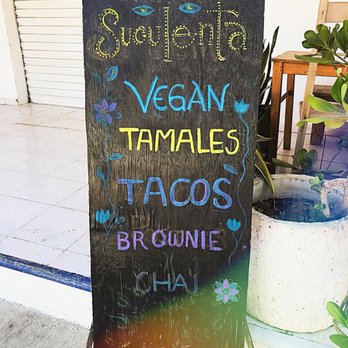 Suculenta
VEGAN
TAMALES
TACOS
BROWNIE
CHAI